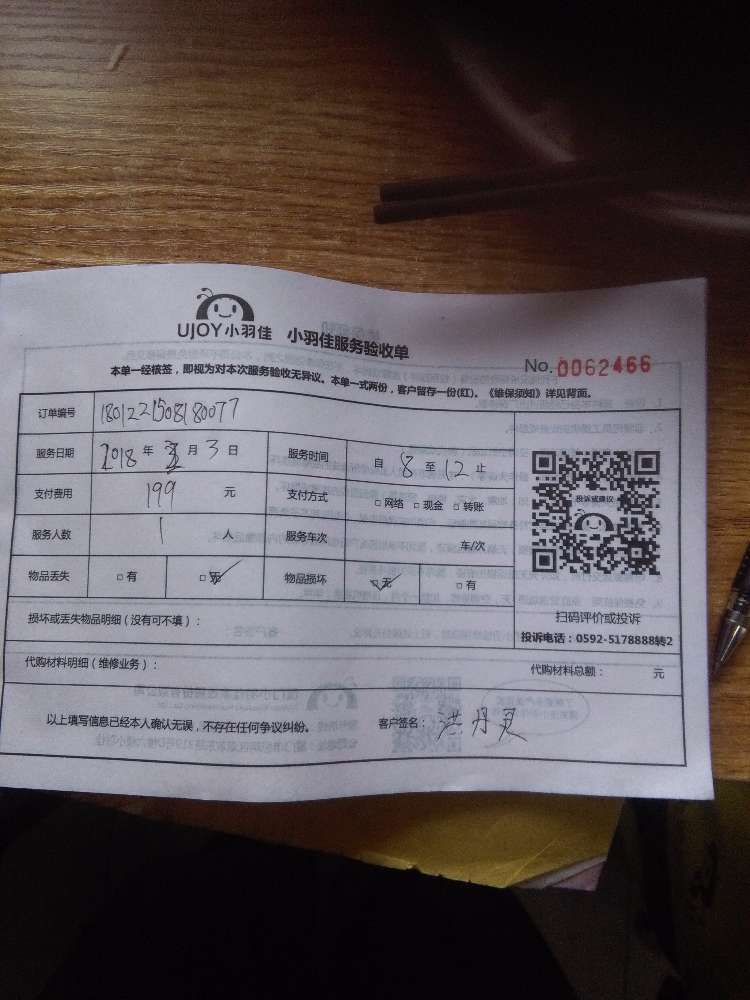 UJOY小羽佳 小羽佳服务验收单
No.0062466
本单一经核签，即视为对本次服务验收无异议。本单一式两份，客户留存一份(红)。《维保须知》详见背面。
订单编号 180122150818007７
服务日期 2018 年 月 3 日 服务时间 自 8 至 12 止
支付费用 199 元 支付方式 □网络 □现金 □转账
服务人数 1 人 服务车次 车/次
物品丢失 □有 □无✓ 物品损坏 □无✓ □有
投诉或建议
扫码评价或投诉
投诉电话：0592-5178888转2
损坏或丢失物品明细（没有可不填）：
代购材料明细（维修业务）： 代购材料总额： 元
以上填写信息已经本人确认无误，不存在任何争议纠纷。 客户签名：洪丹灵